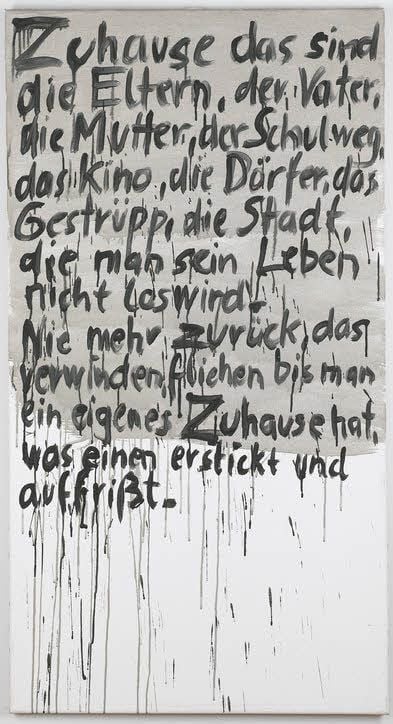 Zuhause das sind
die Eltern, der Vater,
die Mutter, der Schulweg,
das Kino, die Dörfer, das
Gestrüpp, die Stadt,
die man sein Leben
nicht loswird.
Nie mehr zurück, das
verwinden, fliehen bis man
ein eigenes Zuhause hat,
was einen erstickt und
auffrißt.